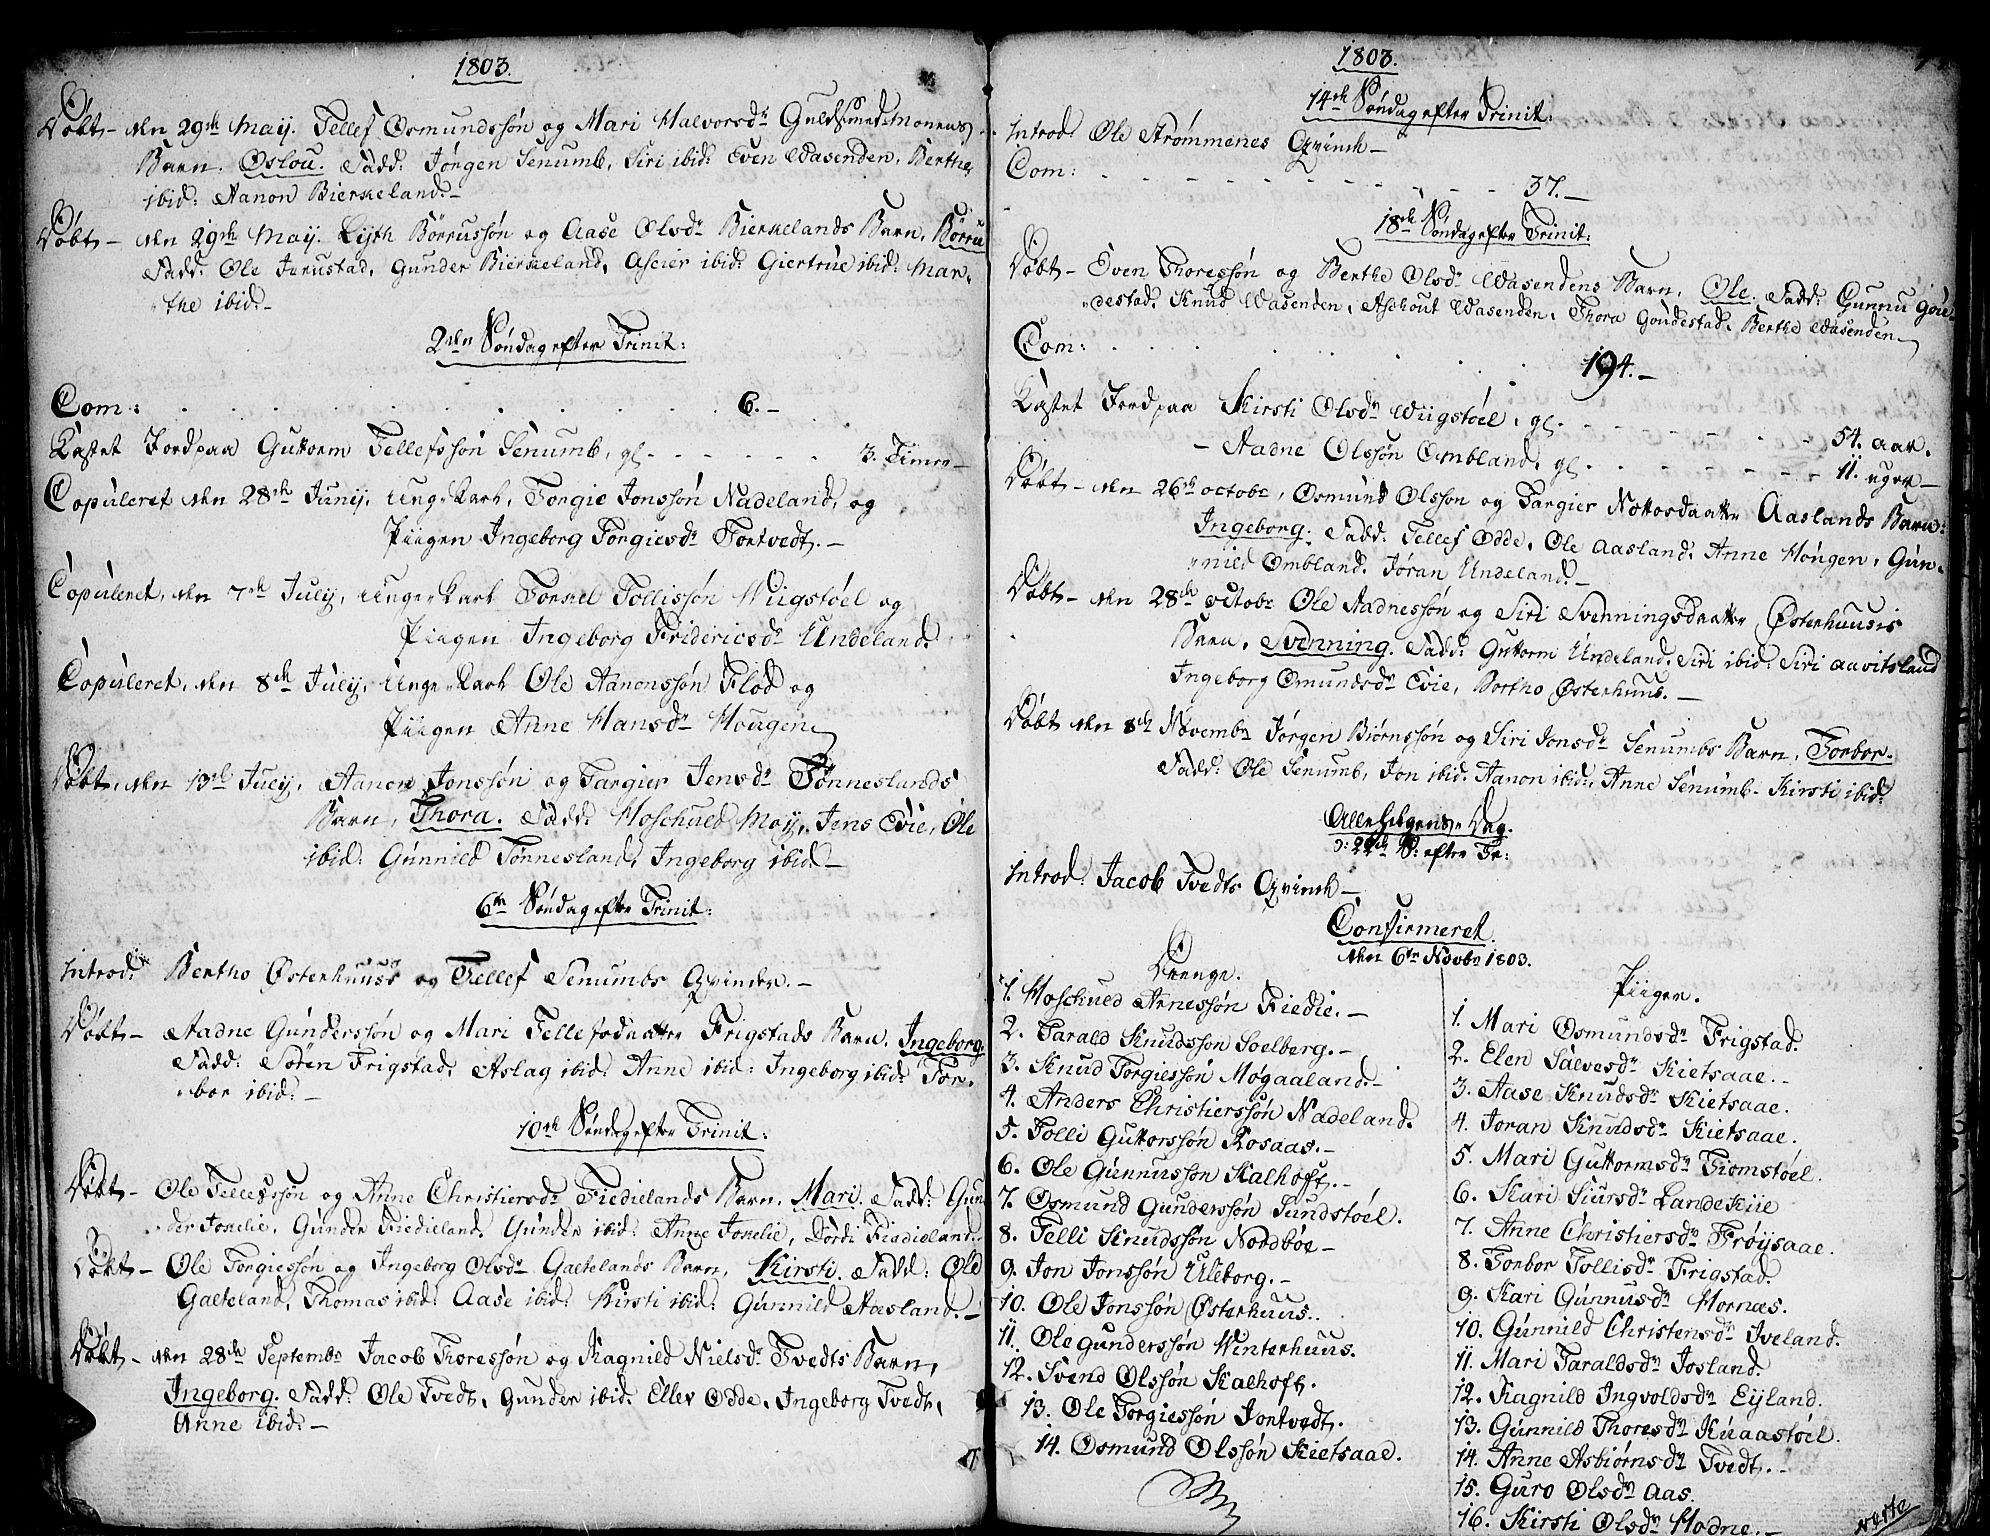 1803.
Döbt – den 29de Maij. Tellef Osmundssøn og Mari Halvorsdr Guldsmed-Monens
Barn. Oslou. Fadd: Jørgen Senumb, Siri ibid: Even Wasenden, Berthe
ibid: Aanon Bierkeland. –
Döbt – den 29de Maij. Lijth Børrusson og Aase Olsdr Bierkelands Barn, Børru
Fadd: Ole Jerustad, Gunder Bierkeland, Aseier ibid: Giertrue ibid: Mar-
the ibid. –
2den Søndag efter Trinit:
Com: . . . . . . . . 6. –
Kastet Jord paa Guttorm Tellefssøn Senumb, gl. – – – – – 3. Timer –
Copuleret den 28de Junij, Unge Karl, Torgie Jonssøn Nadeland, og
Piigen Ingeborg Torgiesdr Tortvedt. –
Copuleret, den 7de Julij, Unge Karl Torkel Tollissøn Wiigstøel og
Piigen Ingeborg Fridericsdr Undeland.
Copuleret, den 8de Julij, Unge Karl Ole Aanonssøn Flod og
Piigen Anne Hansdr Hougen
Döbt, den 13de Julij, Aanon Jonssøn og Targier Jensdr Tønneslands
Barn, Thora. Fadd: Hoschued Moij, Jens Evie, Ole
ibid: Gunnild Tønnesland, Ingeborg ibid. –
6te Søndag efter Trinit:
Introd: Bertho Østerhuus og Tellef Senumbs Qvinder. –
Döbt – Aadne Gunderssøn og Mari Tellefsdaatter Frigstads Barn, Ingeborg.
Fadd: Søren Frigstad, Aslag ibid: Anne ibid: Ingeborg ibid: Tor-
bor ibid: –
10de Søndag efter Trinit:
Döbt – Ole Tellefssøn og Anne Christiersdr Fiedielands Barn, Mari. Fadd: Gun-
der Jonelie, Gunder Fiedieland. Gunder ibid: Anne Jonelie, Dordi Fiedieland.
Döbt – Ole Torgiessøn og Ingeborg Olsdr Gaetelands Barn, Kirsti. Fadd: Ole
Gaeteland, Thomas ibid: Aase ibid: Kirsti ibid: Gunnild Aasland. –
Döbt – den 28de Septembr Jacob Thoressøn og Ragnild Nielsdr Tvedts Barn,
Ingeborg. Fadd: Ole Tvedt, Gunder ibid: Ellev Odde, Ingeborg Tvedt,
Anne ibid: –
1803.
14de Søndag efter Trinit:
Introd: Ole Strømmenes Qvinde –
Com: – – – – – – – – 37. –
18de Søndag efter Trinit:
Döbt – Even Thoressøn og Berthe Olsdr Wasendens Barn, Ole. Fadd: Gunnu Gou-
destad, Knud Wasenden, Aschout Wasenden, Thora Goudestad, Berthe Wasenden
Com: . . . . . . . . 194. –
Kastet Jord paa Kirsti Olsdr Wiigstøel, gl. – – – – – 54. aar.
– Aadne Olssøn Ombland, gl. – – – – – 11. uger –
Döbt – den 26de octobr, Osmund Olsson og Targier Nottosdaatter Aaslands Barn:
Ingeborg. Fadd: Tellef Odde, Ole Aasland, Anne Hougen, Gun-
nild Ombland, Jøran Undeland. –
Döbt – den 28de octobr Ole Aadnessøn og Siri Svenningsdaatter Østerhuusis
Barn, Svenning. Fadd: Guttorm Undeland, Siri ibid: Siri Aavitsland
Ingeborg Omundsdr Evie, Bertho Østerhuus. –
Döbt den 8de Novembr Jørgen Biørnssøn og Siri Jonsdr Senumbs Barn, Torbor.
Fadd: Ole Senumb, Jon ibid: Aanon ibid:, Anne Senumb – Kirsti ibid:
Alle helgens-Dag.
ↄ: 22de S: efter Tr:
Introd: Jacob Tvedts Qvinde –
Confirmeret.
den 6te Novbr 1803.
Drenge.
1. Hoschued Arnessøn Fiedie. –
2. Tarald Knudssøn Soelberg. –
3. Knud Torgiessøn Møgaaland. –
4. Anders Christierssøn Nadeland.
5. Tolli Guttorssøn Rosaas. –
6. Ole Gunnusson Kalhoft. –
7. Osmund Gunderssøn Sundstøel.
8. Telli Knudssøn Nordboe –
9. Jon Jonssøn Uleborg. –
10. Ole Jonssøn Østerhuus.
11. Ole Gunderssøn Winterhuus.
12. Svend Olssøn Kalhoft.
13. Ole Torgiessøn Tortvedt.
14. Osmund Olssøn Kietsaae.
Piiger.
1. Mari Osmundsdr Frigstad.
2. Elen Salvesdr Kietsaae. –
3. Aase Knudsdr Kietsaae.
4. Joran Knudsdr Kietsaae.
5. Mari Guttormsdr Tiomstøel.
6. Kari Siursdr Landeskiie
7. Anne Christiersdr Frøijsaae.
8. Torbor Tollisdr Frigstad.
9. Kari Gunnusdr Hornæs.
10. Gunnild Christensdr Iveland.
11. Mari Taraldsdr Josland.
12. Ragnild Ingvoldsdr Eijland.
13. Gunnild Thoresdr Kuaastøel.
14. Anne Asbiørnsdr Tvedt. –
15. Guro Olsdr Aas.
16. Kirsti Olsdr Hodne. –
verte